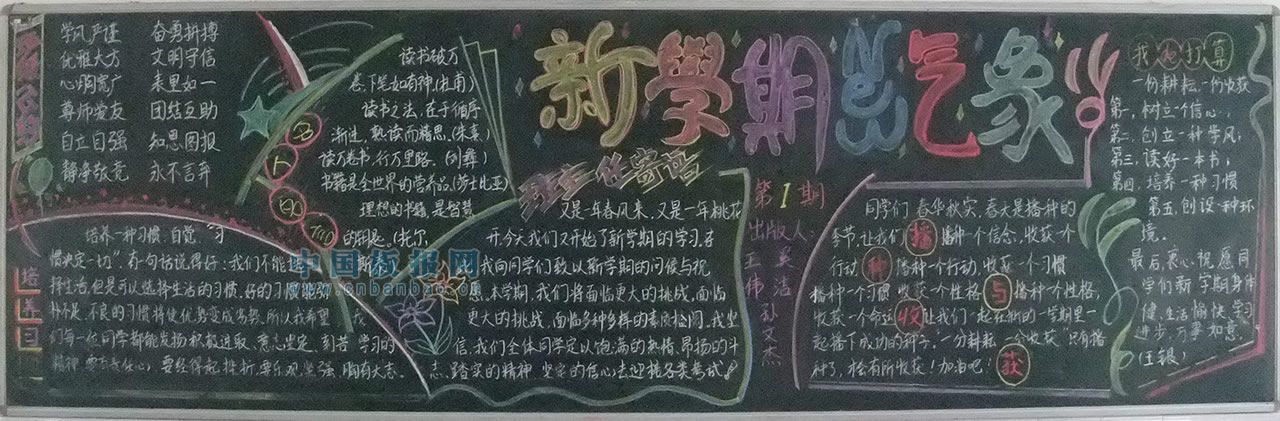 学风严谨 奋勇拼搏
优雅大方 文明守信
心胸宽广 表里如一
尊师爱友 团结互助
自立自强 知恩图报
静净敬竞 永不言弃
名
人
读书破万
卷,下笔如有神(杜甫)
读书之法,在于循序
渐进,熟读而精思,(朱熹)
读万卷书,行万里路。(刘彝)
书籍是全世界的营养品,(莎士比亚)
理想的书籍,是智慧
的钥匙。(托尔
新學期 NEW 气象
班主任寄语
又是一年春风来,又是一年桃花
开,今天我们又开始了新学期的学习,在
我向同学们致以新学期的问候与祝
愿。本学期,我们将面临更大的挑战,面临
更大的挑战,面临多种多样的素质检阅,我坚
信,我们全体同学定以饱满的热情、昂扬的斗
志、踏实的精神、坚定的信心去迎接各类考试。
培养习
培养一种习惯:自觉 学习
惯决定一切”有句话说得好:我们不能
择生活,但是可以选择生活的习惯,好的习惯能弥
补不足,不良的习惯将使优势变成劣势,所以我希望 我
们每一位同学都能发扬积极进取、意志坚定、刻苦 学习的
精神,要有责任心,要经得起挫折,要乐观坚强,胸有大志。
第1期
出版人:
王英
伟洁
孙文杰
同学们,春华秋实,春天是播种的
季节,让我们播 播种一个信念,收获一个
行动 种 播种一个行动,收获一个习惯
播种一个习惯 收获一个性格 与 播种一个性格,
收获一个命运 收 让我们一起在新的一学期里一
起播下成功的种子,一分耕耘 一分收获 只有播
种了,才会有所收获!加油吧! 获
我的打算
一份耕耘,一份收获
第一,树立一个信心;
第二,创立一种学风;
第三,读好一本书;
第四,培养一种习惯
第五,创设一种环
境。
最后,衷心祝愿同
学们新学期身体
健,生活愉快,学习
进步,万事如意。
(汪银)
中国板报网
cnbanbao.cn